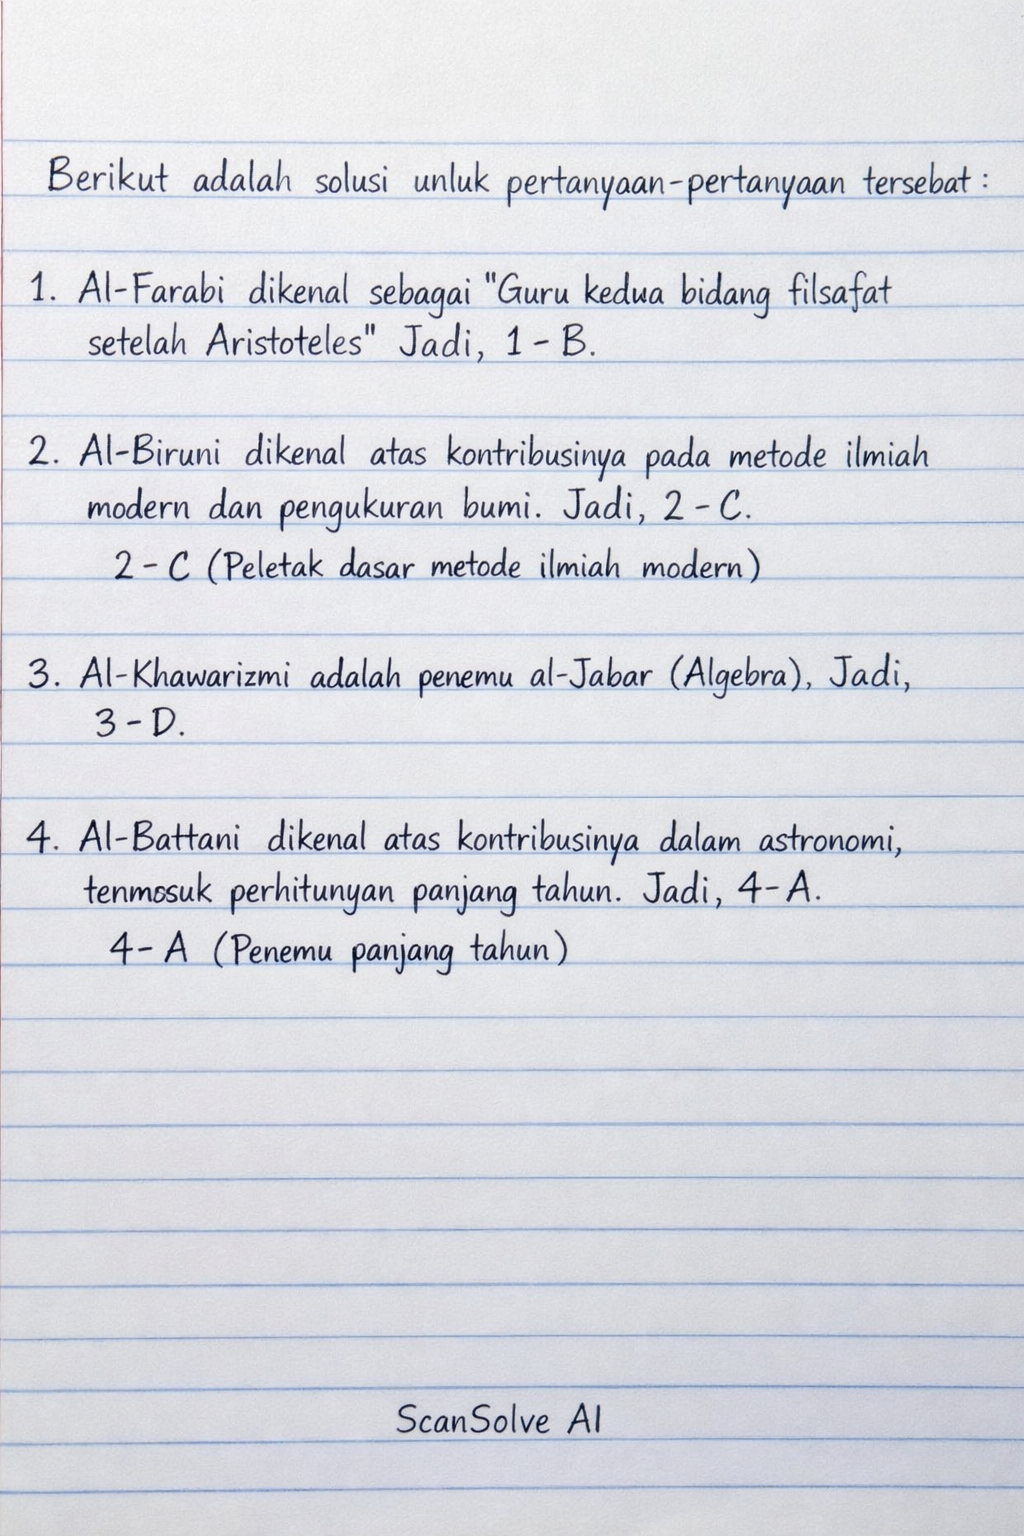 Berikut adalah solusi unluk pertanyaan-pertanyaan tersebat :
1. Al-Farabi dikenal sebagai "Guru kedua bidang filsafat
setelah Aristoteles" Jadi, 1 - B.
2. Al-Biruni dikenal atas kontribusinya pada metode ilmiah
modern dan pengukuran bumi. Jadi, 2 - C.
2 - C (Peletak dasar metode ilmiah modern)
3. Al-Khawarizmi adalah penemu al-Jabar (Algebra), Jadi,
3 - D.
4. Al-Battani dikenal atas kontribusinya dalam astronomi,
tenmosuk perhitunyan panjang tahun. Jadi, 4- A.
4- A (Penemu panjang tahun)
ScanSolve AI